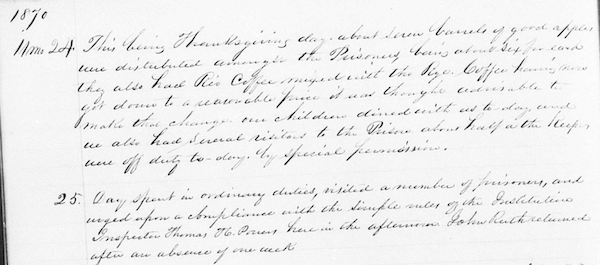 1870
11 mo 24. This being Thanksgiving day. about Seven barrels of good apples
were distributed amongst the Prisoners, being about Six for each
they also had Rio Coffee mixed with the Rye. Coffee having now
got down to a reasonable price it was thought advisable to
make that change. our children dined with us to-day, and
we also had several visitors to the Prison about half of the Keeps
were off duty to-day. by special permission.
25. Day spent in ordinary duties, visited a number of prisoners, and
urged upon a compliance with the simple rules of the Institution
Inspector Thomas H. Powers here in the afternoon John Ruth returned
after an absence of one week